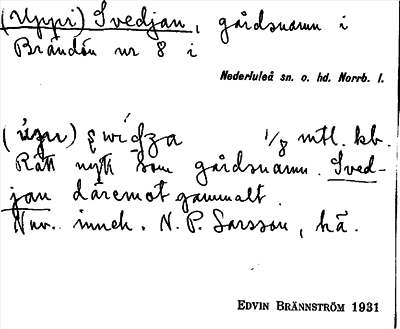 (Uppi) Svedjan, gårdsnamn i
Brändön nr 8 i
Nederluleå sn. o. hd. Norrb. l.
1/8 mtl. kb.
Rätt nytt som gårdsnamn. Sved-
jan däremot gammalt.
Nuv. inneh. N. P. Larsson, hä.
EDVIN BRÄNNSTRÖM 1931